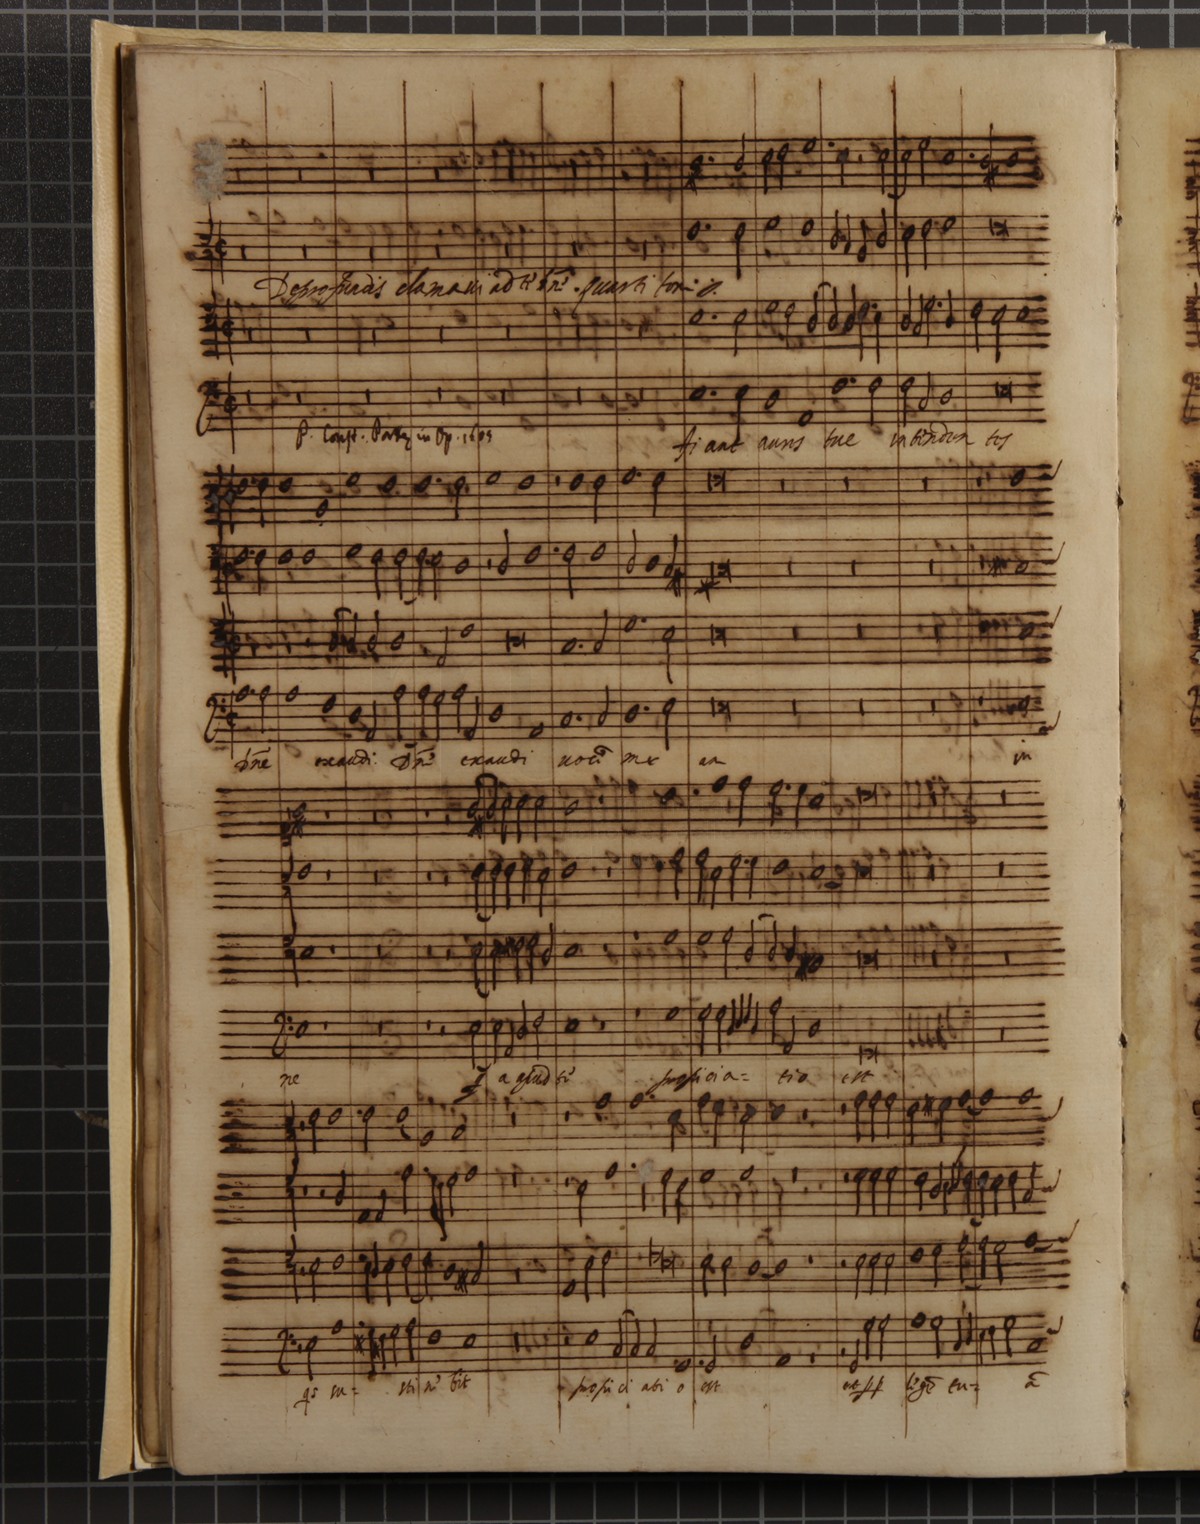 De profundis clamavi ad te dñe. quarti toni. 8.
P. Const. Portæ in Op. 1605
fi ant aures tue intenden tes
Dñe exaudi. Dñe exaudi uocē me am in
ne
a pud te propicia= tio est
qis su= sti ne bit propi ci ati o est et pp legē tu= ā